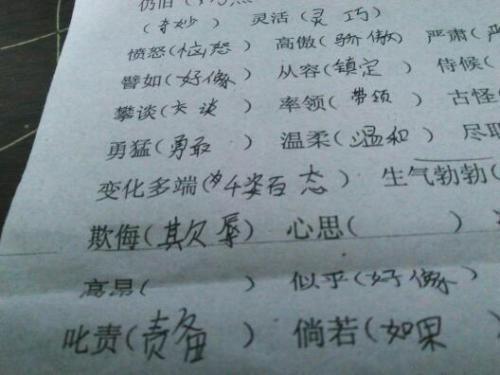 仍旧(
(奇妙) 灵活(灵巧)
愤怒(恼怒) 高傲(骄傲) 严肃(
譬如(好像) 从容(镇定) 侍候(
攀谈(交谈) 率领(带领) 古怪(
勇猛(勇敢) 温柔(温和) 尽
变化多端(千姿百态) 生气勃勃(
欺侮(欺辱) 心思( )
高昂( ) 似乎(好像)
叱责(责备) 倘若(如果)